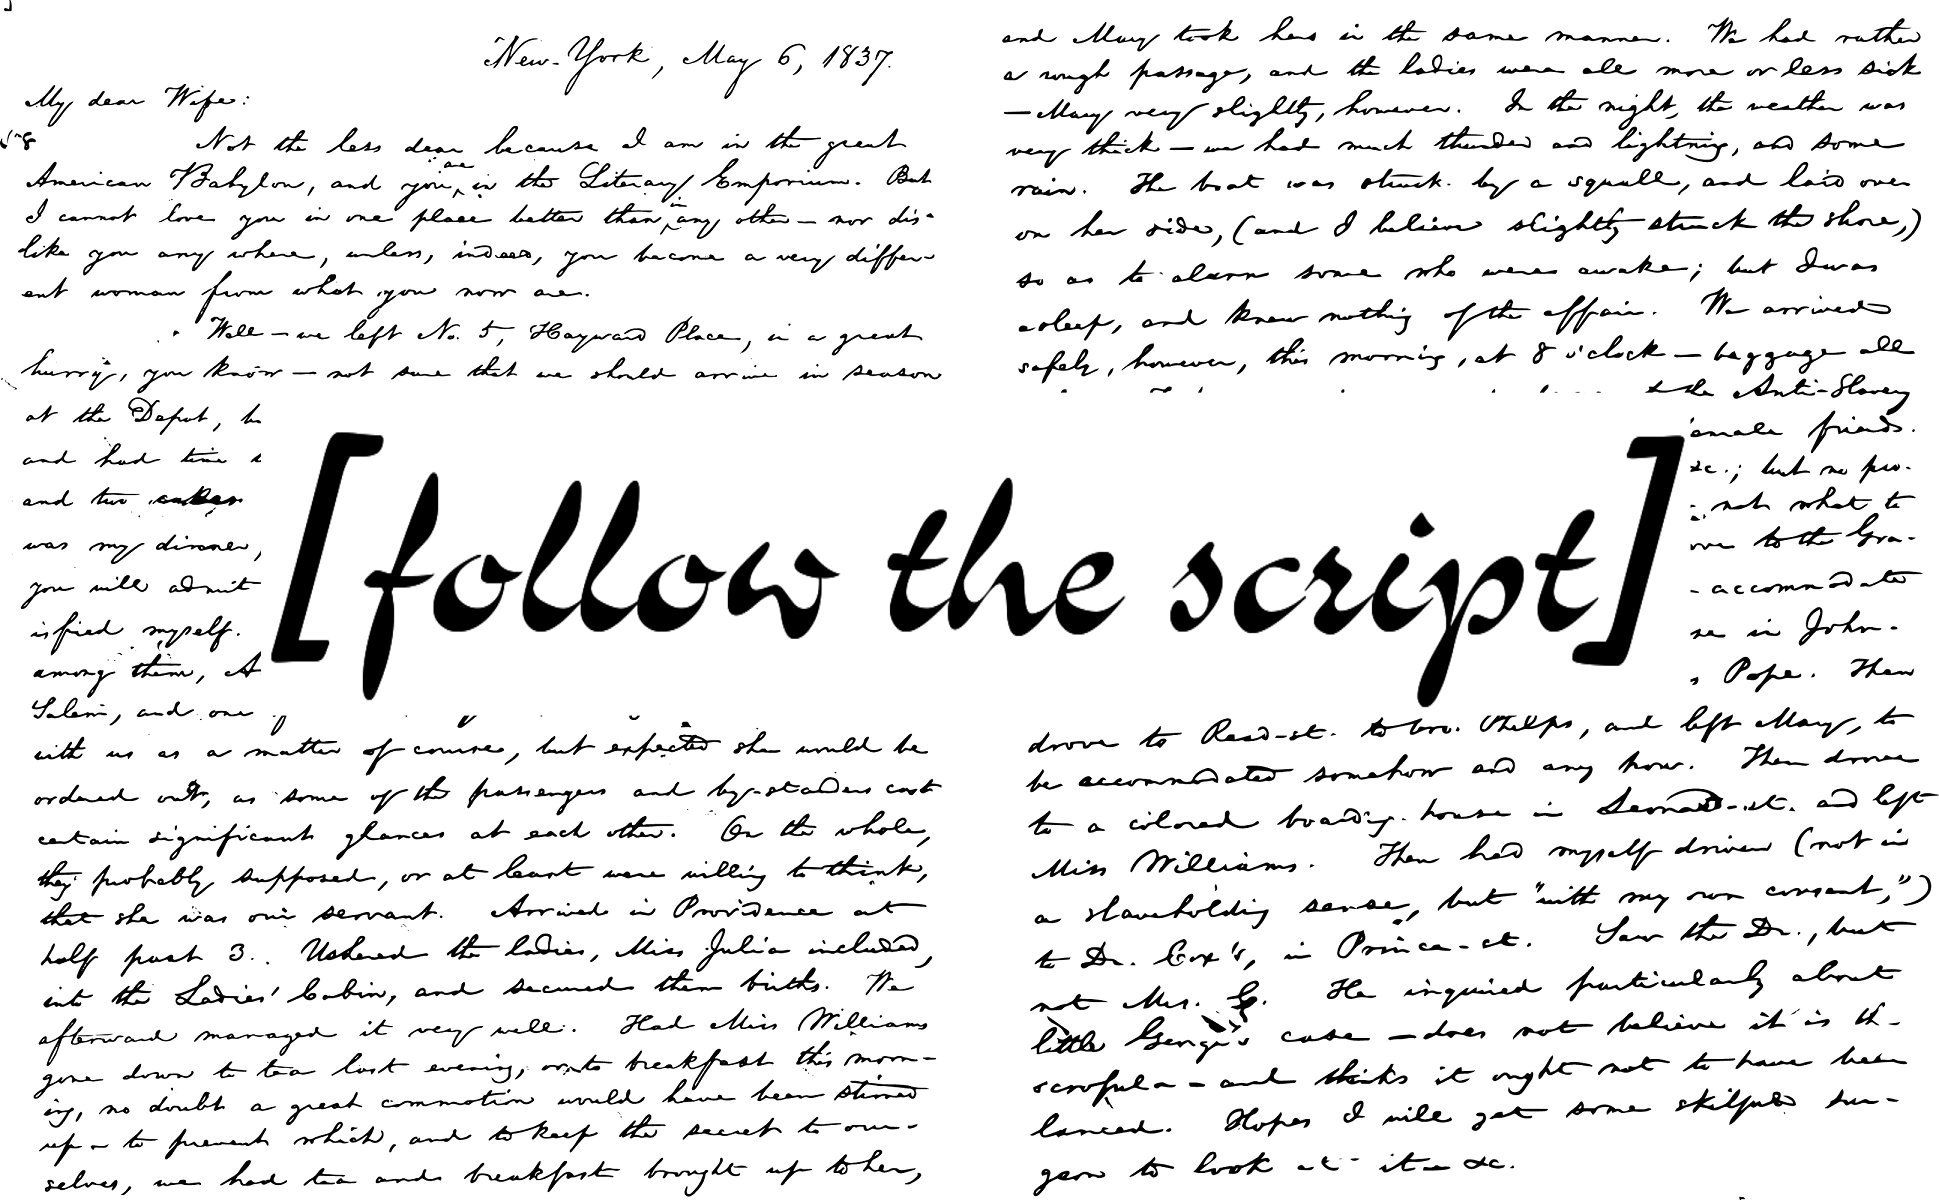 New-York, May 6, 1837.
My dear Wife:
58
Not the less dear because I am in the great
American Babylon, and you are in the Literary Emporium. But
I cannot love you in one place better than in any other — nor dis-
like you any where, unless, indeed, you become a very differ-
ent woman from what you now are.
Well — we left No. 5, Hayward Place, in a great
hurry, you know — not sure that we should arrive in season
at the Depot, b
and had time
and two cakes
was my dinner,
you will admit
isfied myself.
among them, A
Salem, and one
with us as a matter of course, but expected she would be
ordered out, as some of the passengers and by-standers cast
certain significant glances at each other. On the whole,
they probably supposed, or at least were willing to think,
that she was our servant. Arrived in Providence at
half past 3. Ushered the ladies, Miss Julia included,
into the Ladies' Cabin, and secured them births. We
afterward managed it very well. Had Miss Williams
gone down to tea last evening, or to breakfast this morn-
ing, no doubt a great commotion would have been stirred
up — to prevent which, and to keep the secret to our-
selves, we had tea and breakfast brought up to her,
[follow the script]
and Mary took hers in the same manner. We had rather
a rough passage, and the ladies were all more or less sick
— Mary very slightly, however. In the night, the weather was
very thick — we had much thunder and lightning, and some
rain. The boat was struck by a squall, and laid over
on her side, (and I believe slightly struck the shore,)
so as to alarm some who were awake; but I was
asleep, and knew nothing of the affair. We arrived
safely, however, this morning, at 8 o'clock — baggage all
the Anti-Slavery
emale friends.
&c.; but no pro-
not what to
ove to the Gra-
accommodate
se in John-
s Pope. Then
drove to Read-st. to bro. Phelps, and left Mary, to
be accommodated somehow and any how. Then drove
to a colored boarding-house in Leonard-st. and left
Miss Williams. Then had myself driven (not in
a slaveholding sense, but "with my own consent,")
to Dr. Cox's, in Prince-st. Saw the Dr., but
not Mrs. C. He inquired particularly about
little George's case — does not believe it is th-
scrofula — and thinks it ought not to have been
lanced. Hopes I will get some skilful sur-
geon to look at it — &c.